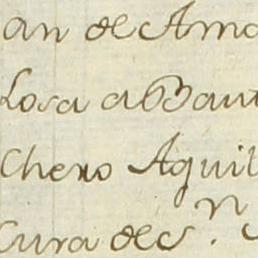 an de Ama
Losa a Baut
Chero Aguil
Cura de S.n